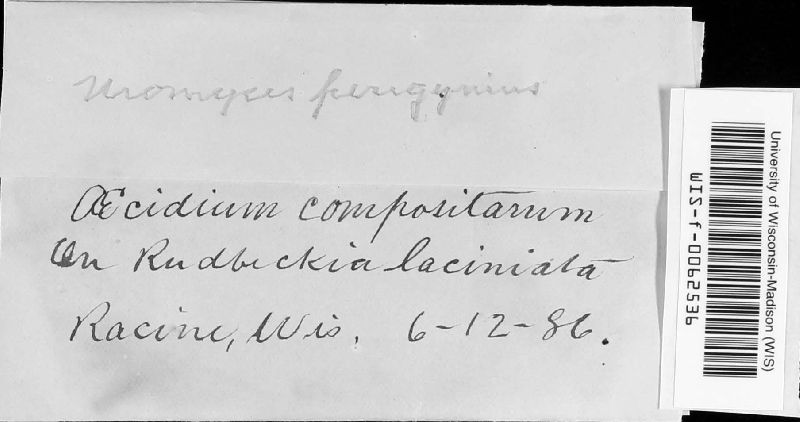 Uromyces perigynius
Æcidium compositarum
On Rudbeckia laciniata
Racine, Wis. 6-12-86.
University of Wisconsin-Madison (WIS)
WIS-f-0062536